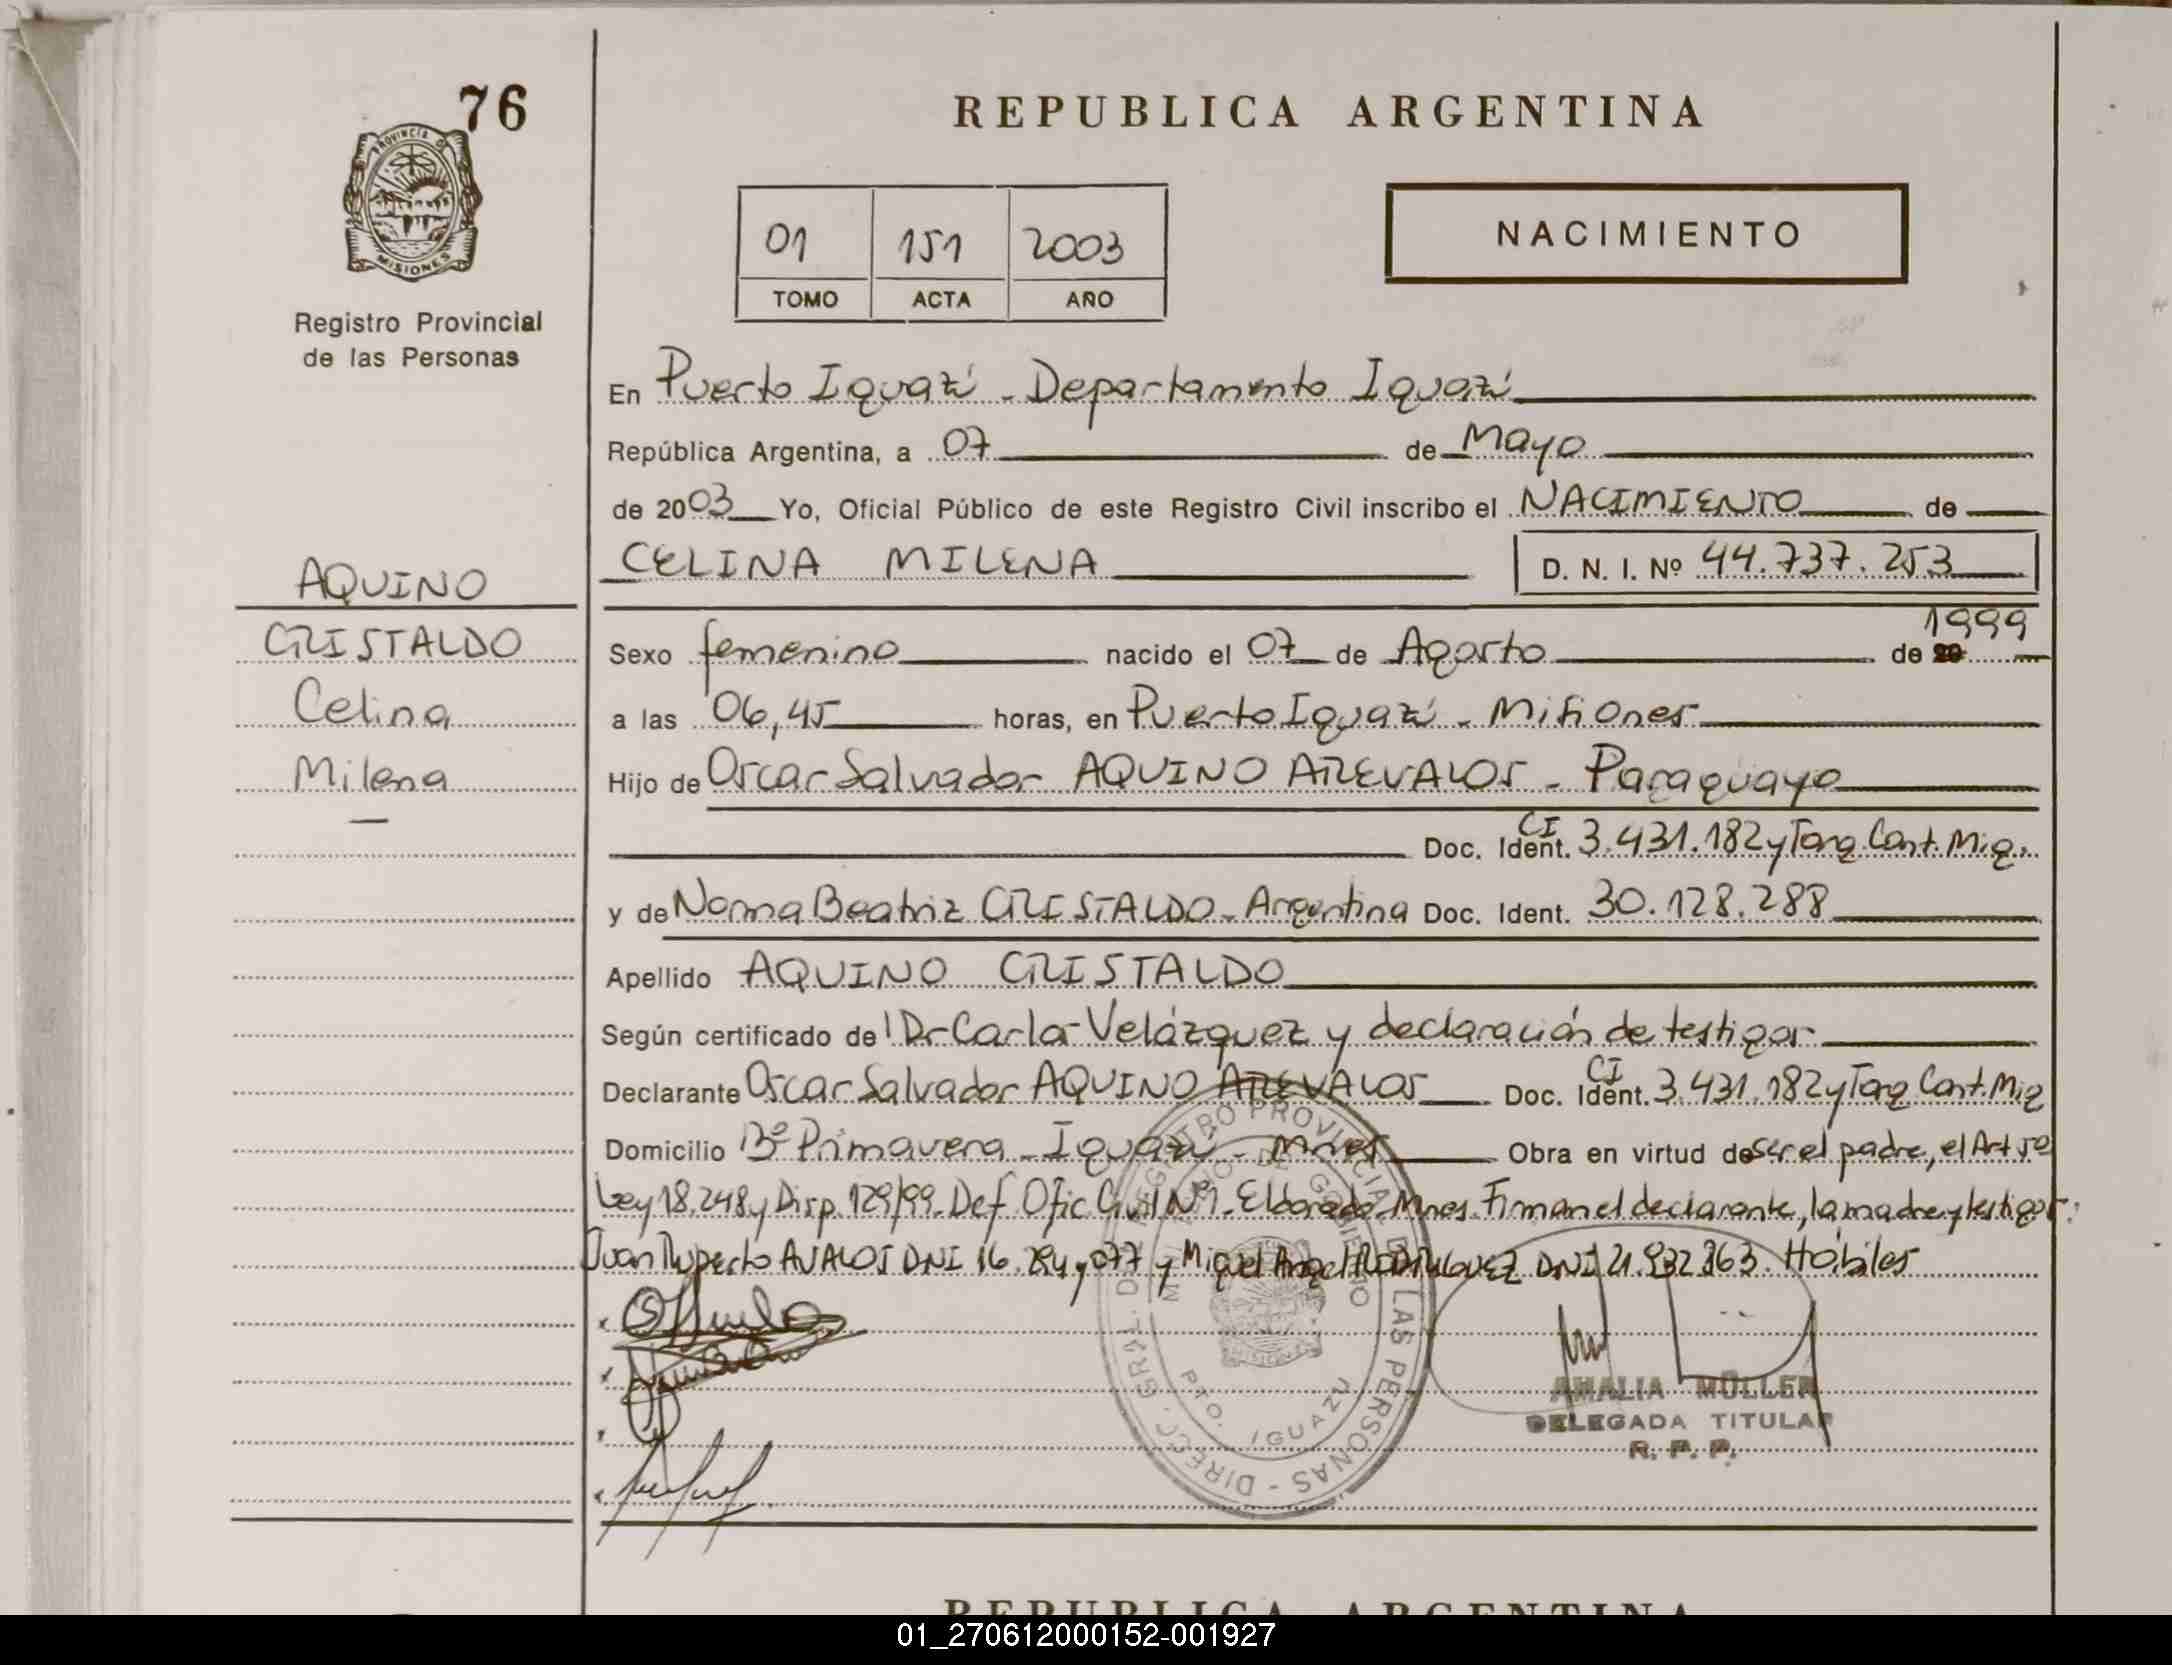 76
PROVINCIA DE
MISIONES
Registro Provincial
de las Personas
AQUINO
CRISTALDO
Celina
Milena
REPUBLICA ARGENTINA
01 151 2003
TOMO ACTA AÑO
NACIMIENTO
En Puerto Iguazú - Departamento Iguazú
República Argentina, a 07 de Mayo
de 2003 Yo, Oficial Público de este Registro Civil inscribo el NACIMIENTO de
CELINA MILENA D. N. I. Nº 44.737.253
Sexo femenino nacido el 07 de Agosto de 1999
a las 06,45 horas, en Puerto Iguazú - Misiones
Hijo de Oscar Salvador AQUINO AREVALOS - Paraguayo
Doc. Ident. CI 3.431.182 y Tarq Cont. Mig.
y de Norma Beatriz CRISTALDO - Argentina Doc. Ident. 30.128.288
Apellido AQUINO CRISTALDO
Según certificado de Dr Carlos Velázquez y declaración de testigos
Declarante Oscar Salvador AQUINO AREVALOS Doc. Ident. CI 3.431.182 y Tarq Cont. Mig
Domicilio Bº Primavera - Iguazú - Mnes Obra en virtud de ser el padre, el Art 5º
Ley 18.248 y Disp. 129/99 - Def Ofic Civil Nº1 - Eldorado - Mnes. Firman el declarante, la madre y testigos:
Juan Ruperto AVALOS DNI 16. 077 y Miguel Angel RODRIGUEZ DNI 21.932.363. Hábiles
DIRECC. GRAL. DEL REGISTRO PROVINCIAL DE LAS PERSONAS
MINISTERIO DE GOBIERNO
PTO. IGUAZU
AMALIA MULLER
DELEGADA TITULAR
R. P. P.
REPUBLICA ARGENTINA
01_270612000152-001927